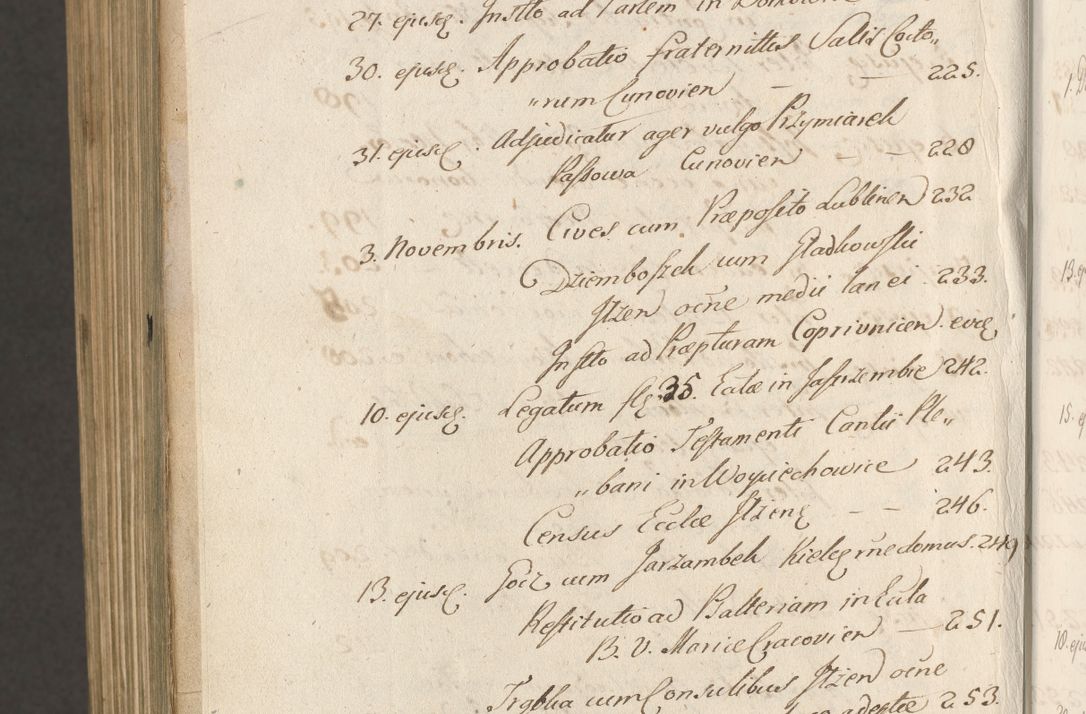 27. ejusq. Instto ad Partem in
30. ejusq. Approbatio fraternittis Salis Cocto„
„rum Cunovien — — 225.
31. ejusq. Adjudicatur ager vulgo Przymiarek
Passowa Cunovien — — 228
3. Novembris. Cives cum Præposito Lublinen 232
Dziemboszek cum Gladkowski
Itzen ocñe medii lanei 233.
Instto ad Præpturam Coprivnicen. eccl:
10. ejusq. Legatum flg 35. Ecclæ in Jastrzembie 242.
Approbatio Testamenti Cantii Ple„
„bani in Woyciechowice 243.
Census Ecclæ Itzens — — 246.
13. ejusq. Gocz cum Jarzambek Kieleg rñe domus. 249
Restitutio ad Psalteriam in Eccla
B. V. Mariæ Cracovien — 251.
cum Consulibus Itzen ocñe
adeptæ 253.